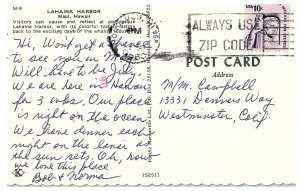 M-9
LAHAINA HARBOR
Maui, Hawaii
Visitors can pause and reflect at
Lahaina Harbor, with its peaceful
back to the exciting days of the whale
Hi, Won't get a chance
to see you in May.
Will have to be July.
We are here in Hawaii
for 3 wks. Our place
is right on the ocean.
We have dinner each
night on the lanai as
the sun sets. Oh, how
we love this place.
Bob & Norma
K
152511
ALWAYS USE
ZIP CODE
US 10c
POST CARD
Address
M/M. Campbell
13331 Danvers Way
Westminster, Calif